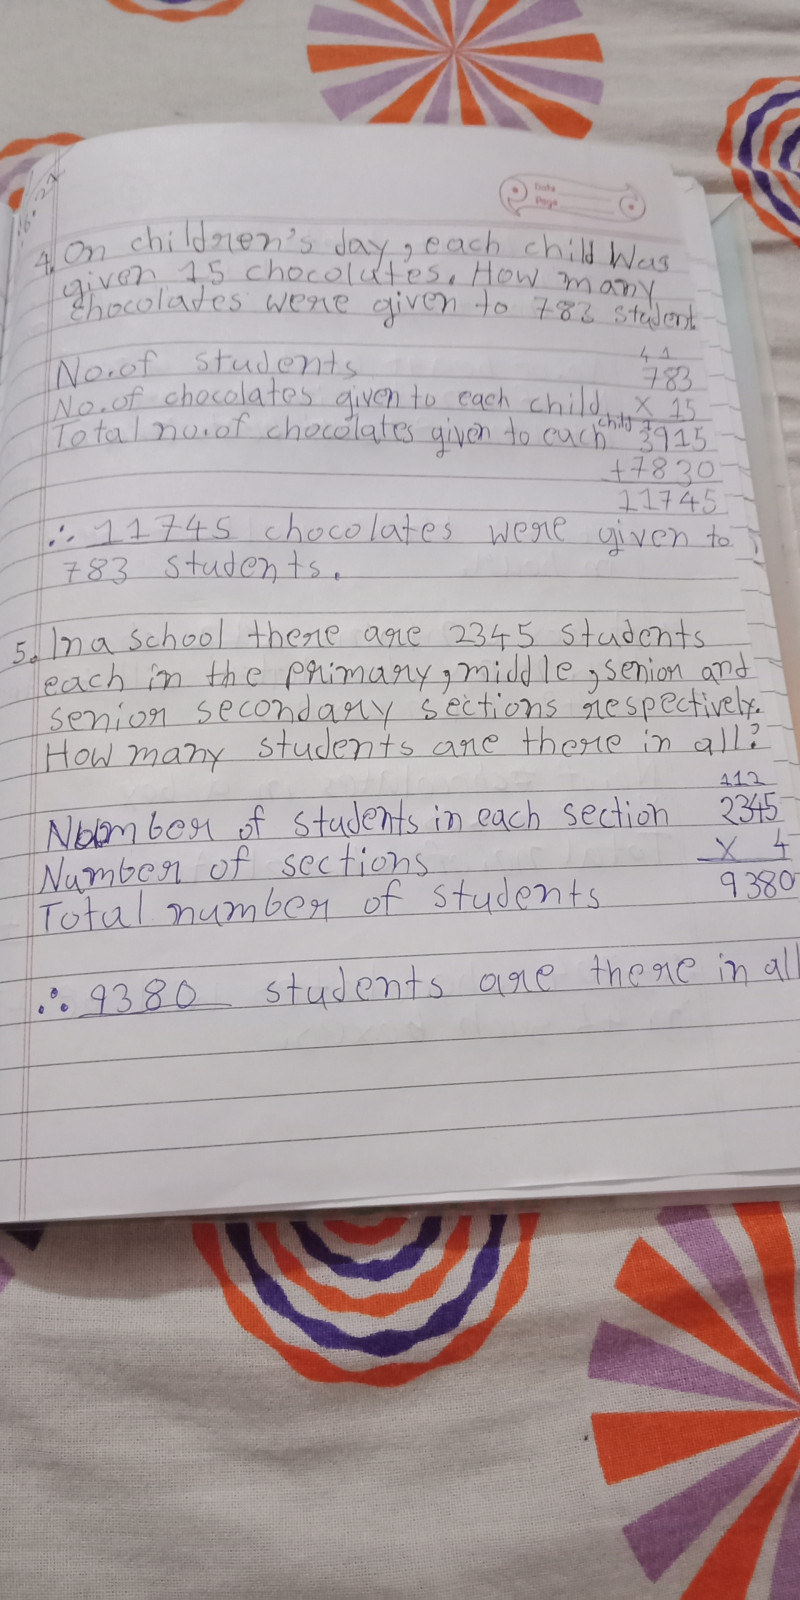 Date
Page
4. On children's day, each child was
given 15 chocolates. How many
chocolates were given to 783 student
4 1
No. of students 783
No. of chocolates given to each child × 15
Total no. of chocolates given to each child 3915
+7830
11745
∴ 11745 chocolates were given to
783 students.
5. In a school there are 2345 students
each in the primary, middle, senior and
senior secondary sections respectively.
How many students are there in all?
112
Number of students in each section 2345
Number of sections × 4
Total number of students 9380
∴ 9380 students are there in all